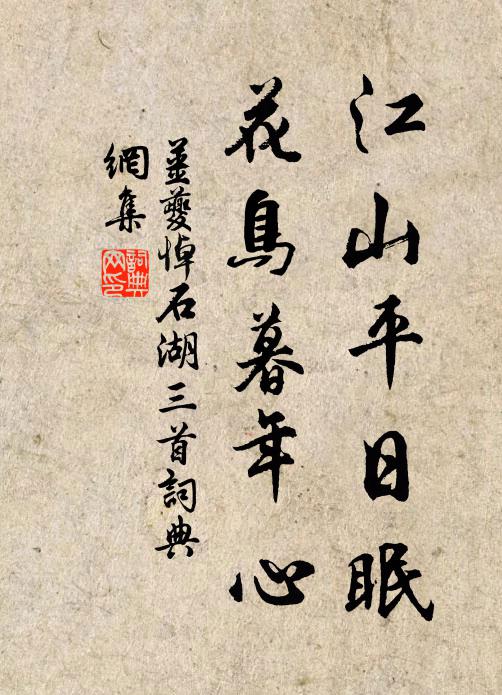 江山平日眼
花鳥暮年心
薑夔悼石湖三首詞典
網集
詞典
网印